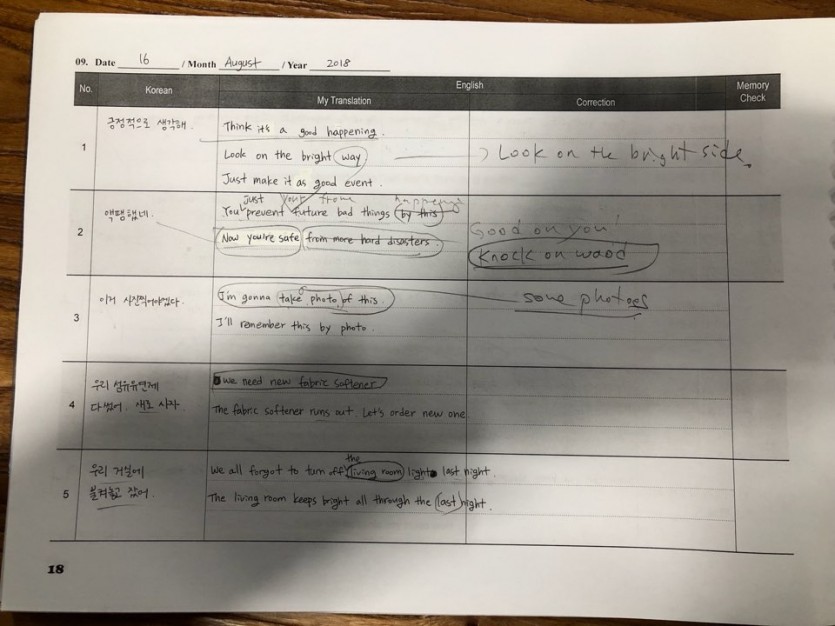 09. Date 16 / Month August / Year 2018
No. Korean English Memory Check
My Translation Correction
1 긍정적으로 생각해.
Think it's a good happening.
Look on the bright way → Look on the bright side.
Just make it as good event.
2 액땜했네.
just your from happening
You prevent future bad things by this
Good on you!
Now you're safe from more hard disasters.
Knock on wood
3 이거 사진찍어야겠다.
I'm gonna take photo of this.
some photoes
I'll remember this by photo.
4 우리 섬유유연제
다썼어. 새로 사자
we need new fabric softener
The fabric softener runs out. Let's order new one.
5 우리 거실에
불켜놓고 잤어.
the
We all forgot to turn off living room light last night.
The living room keeps bright all through the last night.
18